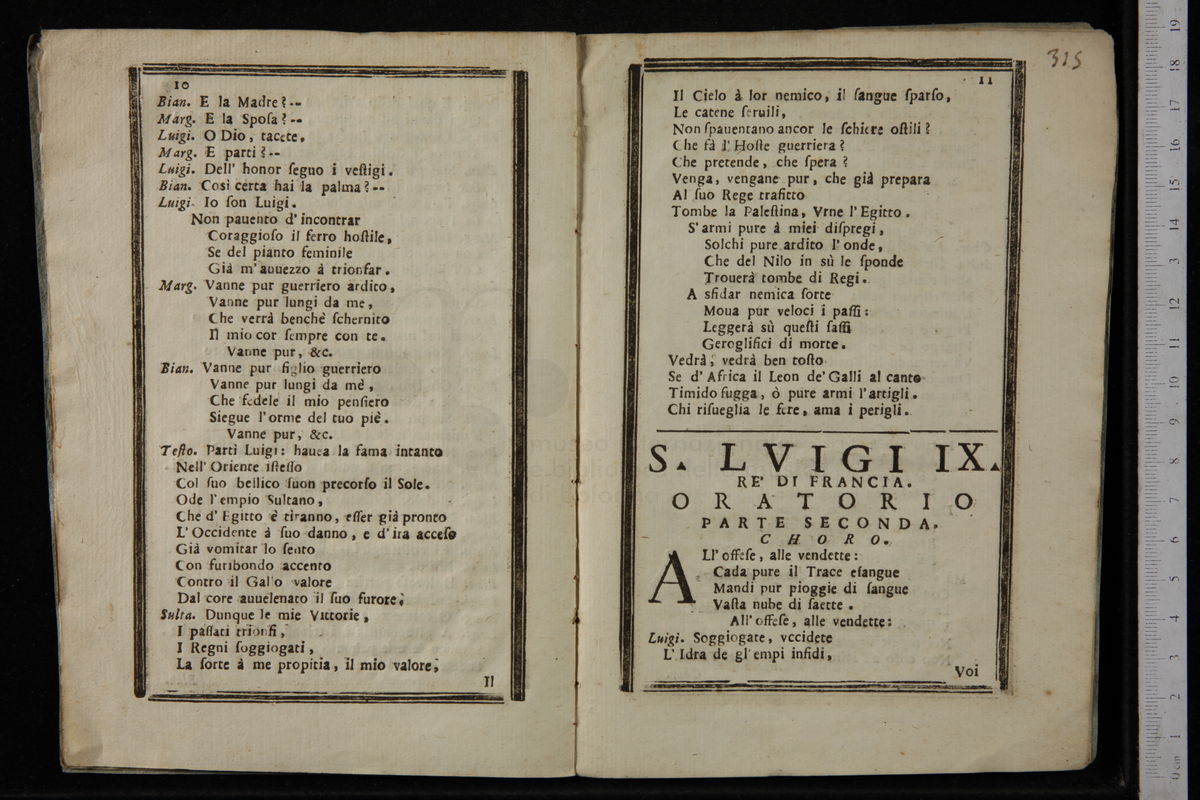 10
Bian. E la Madre? --
Marg. E la Sposa? --
Luigi. O Dio, tacete.
Marg. E parti? --
Luigi. Dell' honor ſeguo i veſtigi.
Bian. Così certa hai la palma? --
Luigi. Io ſon Luigi.
Non pauento d' incontrar
Coraggioſo il ferro hoſtile,
Se del pianto feminile
Già m' auuezzo à trionfar.
Marg. Vanne pur guerriero ardito,
Vanne pur lungi da me,
Che verrà benchè ſchernito
Il mio cor ſempre con te.
Vanne pur, &c.
Bian. Vanne pur figlio guerriero
Vanne pur lungi da mè,
Che fedele il mio penſiero
Siegue l' orme del tuo piè.
Vanne pur, &c.
Teſto. Partì Luigi: hauea la fama intanto
Nell' Oriente iſteſſo
Col ſuo bellico ſuon precorſo il Sole.
Ode l' empio Sultano,
Che d' Egitto è tiranno, eſſer già pronto
L' Occidente à ſuo danno, e d' ira acceſo
Già vomitar lo ſento
Con furibondo accento
Contro il Gallo valore
Dal core auuelenato il ſuo furore;
Sulta. Dunque le mie Vittorie,
I paſſati trionfi,
I Regni ſoggiogati,
La ſorte à me propitia, il mio valore;
Il
315
11
Il Cielo à lor nemico, il ſangue ſparſo,
Le catene ſeruili,
Non ſpauentano ancor le ſchiere oſtili?
Che fà l' Hoſte guerriera?
Che pretende, che ſpera?
Venga, vengane pur, che già prepara
Al ſuo Rege trafitto
Tombe la Paleſtina, Vrne l' Egitto.
S' armi pure à miei diſpregi,
Solchi pure ardito l' onde,
Che del Nilo in sù le ſponde
Trouerà tombe di Regi.
A sfidar nemica ſorte
Moua pur veloci i paſſi:
Leggerà sù queſti ſaſſi
Geroglifici di morte.
Vedrà, vedrà ben toſto
Se d' Africa il Leon de' Galli al canto
Timido fugga, ò pure armi l' artigli.
Chi riſueglia le fere, ama i perigli.
S. LVIGI IX.
RE' DI FRANCIA.
ORATORIO
PARTE SECONDA.
CHORO.
ALl' offeſe, alle vendette:
Cada pure il Trace eſangue
Mandi pur pioggie di ſangue
Vaſta nube di ſaette.
All' offeſe, alle vendette:
Luigi. Soggiogate, vccidete
L' Idra de gl' empi infidi,
Voi